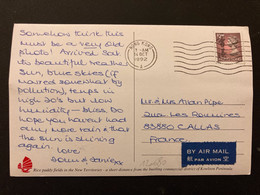 Somehow think this
must be a very old
photo! Arrived Sat
its beautiful weather
Sun, blue skies (if
hazed somewhat by
pollution), temps in
high 20's but low
humidity - bliss. Do
hope you haven't had
any more rain & that
the sun is shining
again.
love
HONG KONG
1992
Mr & Mrs Allan Pipe
83830 CALLAS
France
BY AIR MAIL
PAR AVION
Rice-paddy fields in the New Territories - a short distance from the bustling commercial sector of Kowloon Peninsula